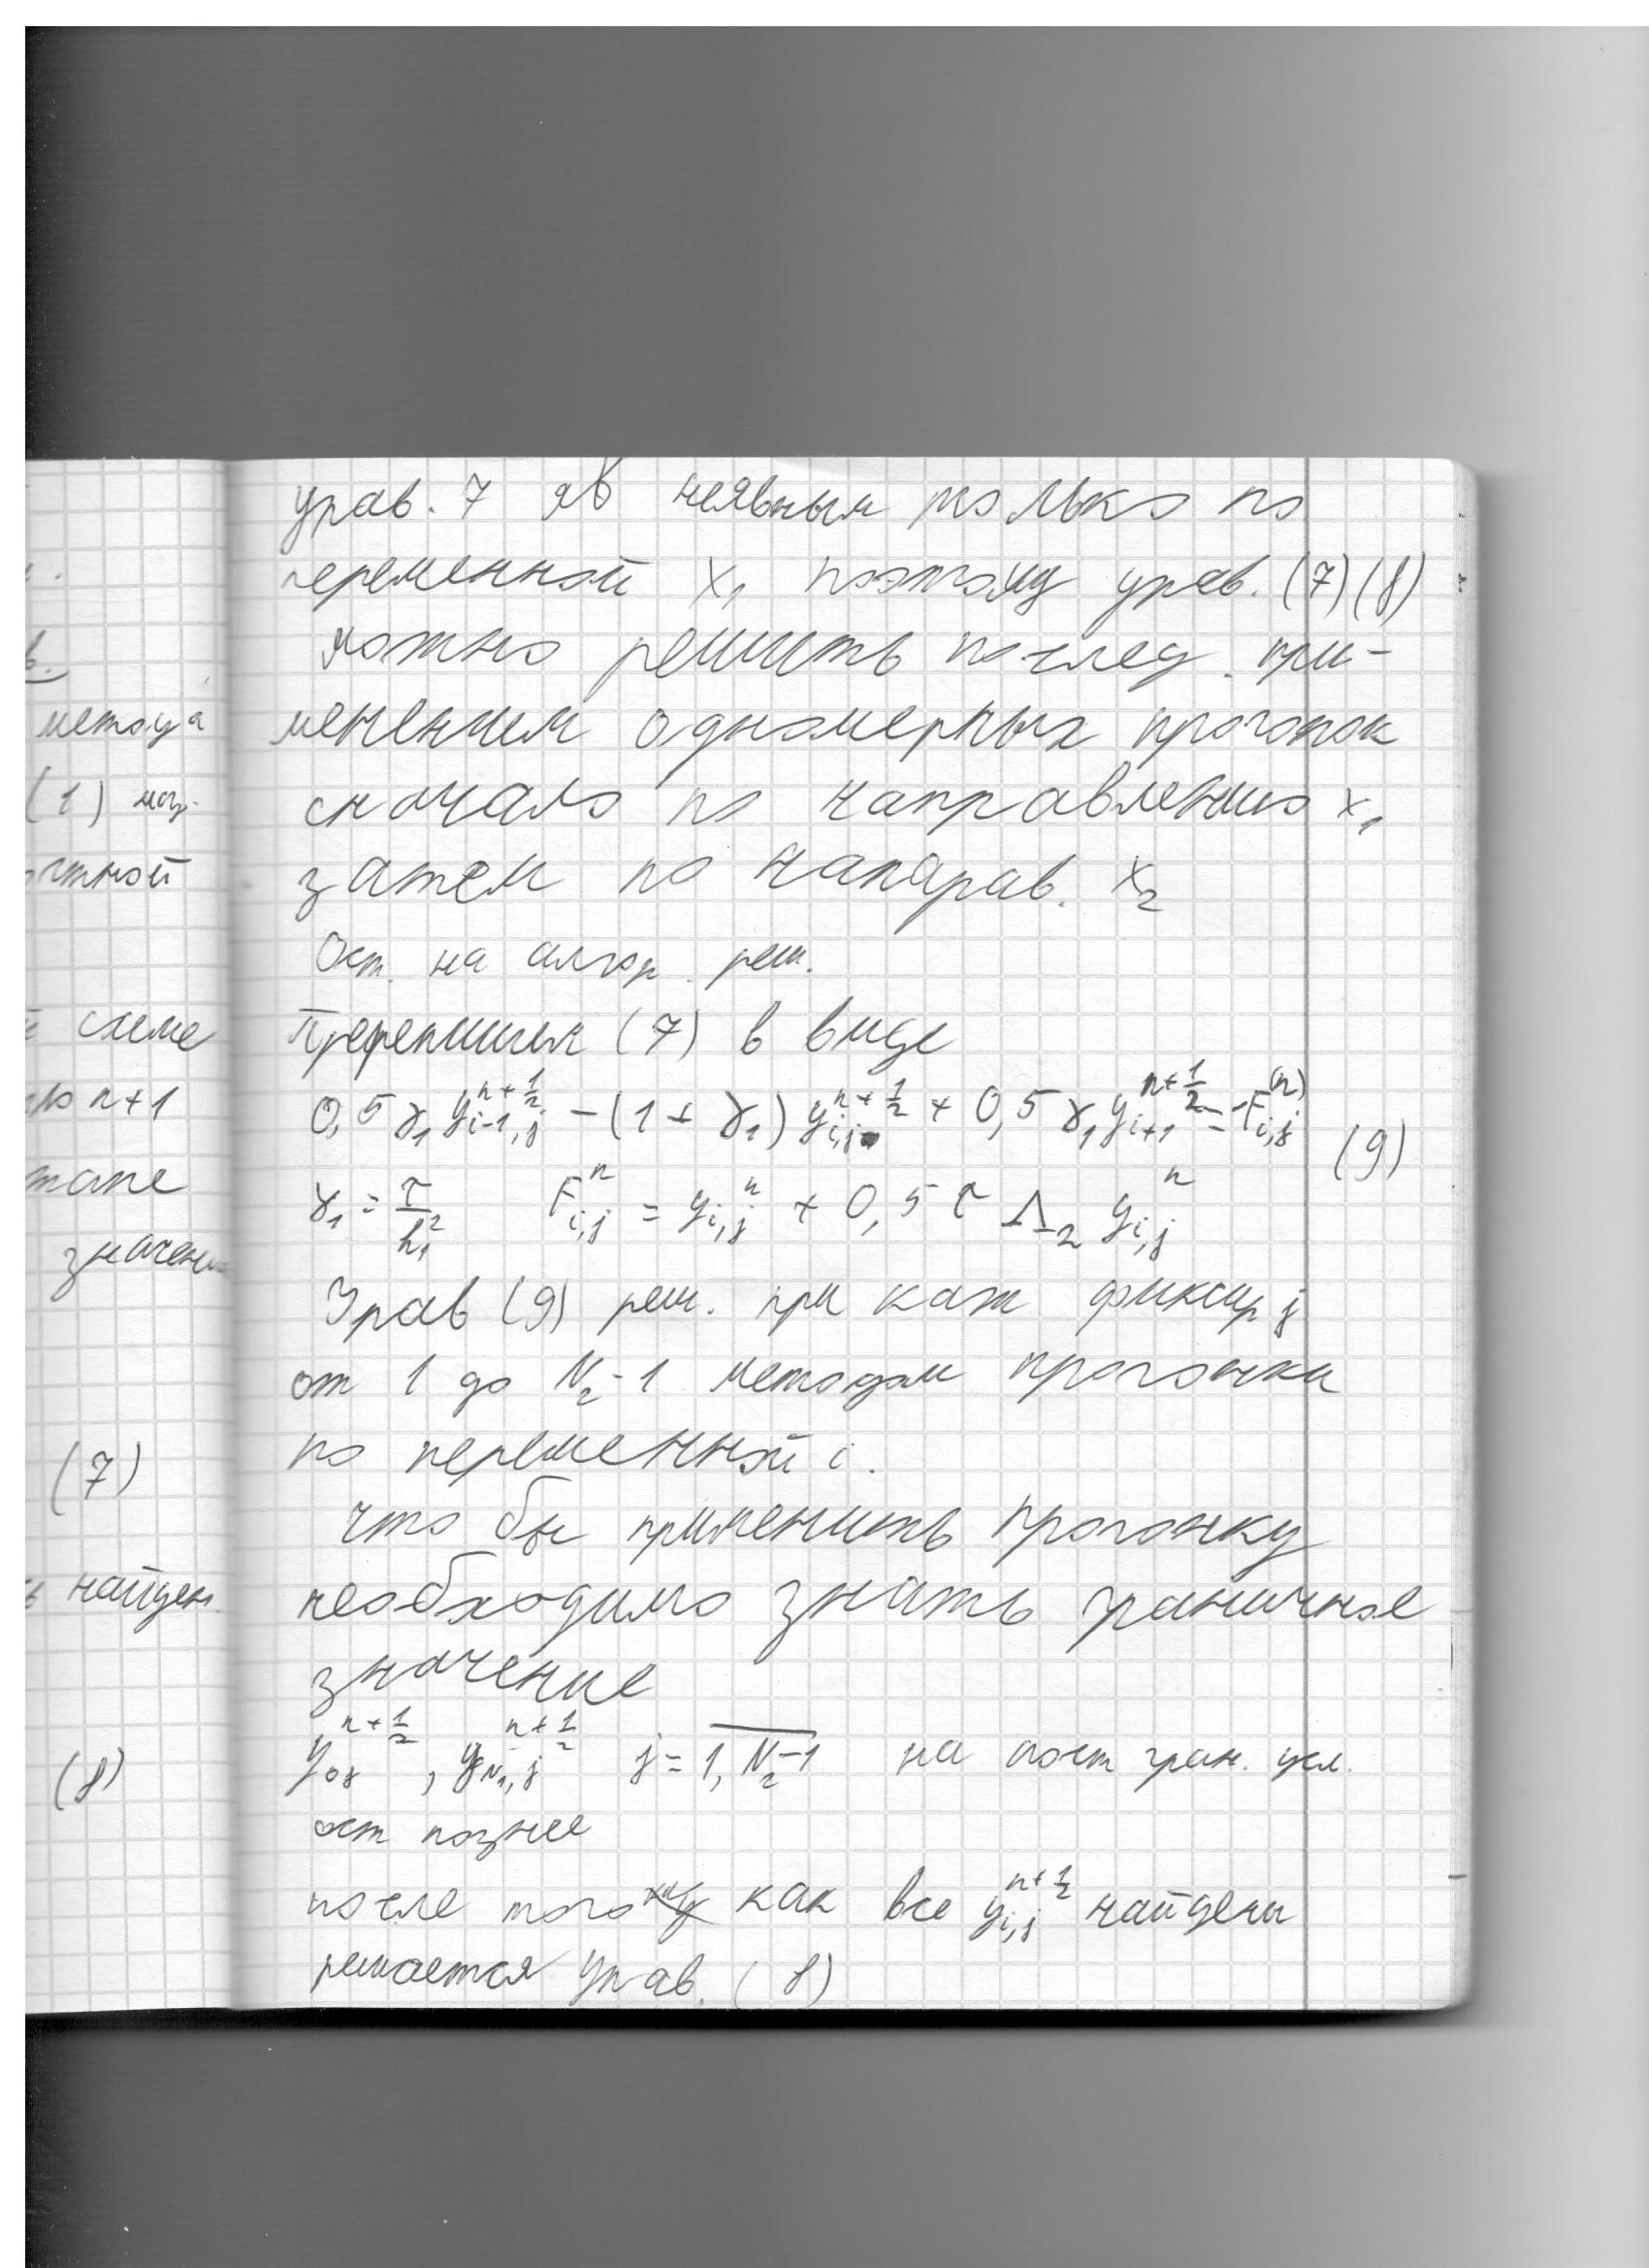 урав. 7 яв неявным только по
переменной x₁ поэтому урав. (7)(8)
можно решить послед. при-
менением одномерных прогонок
сначало по направлению x₁
затем по напарав. x₂
Ост. на алгор. реш.
(7) в виде
0,5 γ₁ y_{i-1,j}^{n+1/2} - (1 + γ₁) y_{i,j}^{n+1/2} + 0,5 γ₁ y_{i+1}^{n+1/2} = -F_{i,j}^{(n)}
(9)
γ₁ = τ/h₁² F_{i,j}^n = y_{i,j}^n + 0,5 τ Λ₂ y_{i,j}^n
Урав (9) реш. при каж фиксир j
от 1 до N₂-1 методом прогонки
по переменной i.
что бы применить прогонку
необходимо знать граничное
значение
y_{0j}^{n+1/2}, y_{N₁,j}^{n+1/2} j = 1, N₂-1 на пост гран. усл.
ост позднее
после того как все y_{i,j}^{n+1/2} найдены
решается урав. (8)
метода
(1) наз.
схеме
n+1
значени
(7)
найден.
(8)